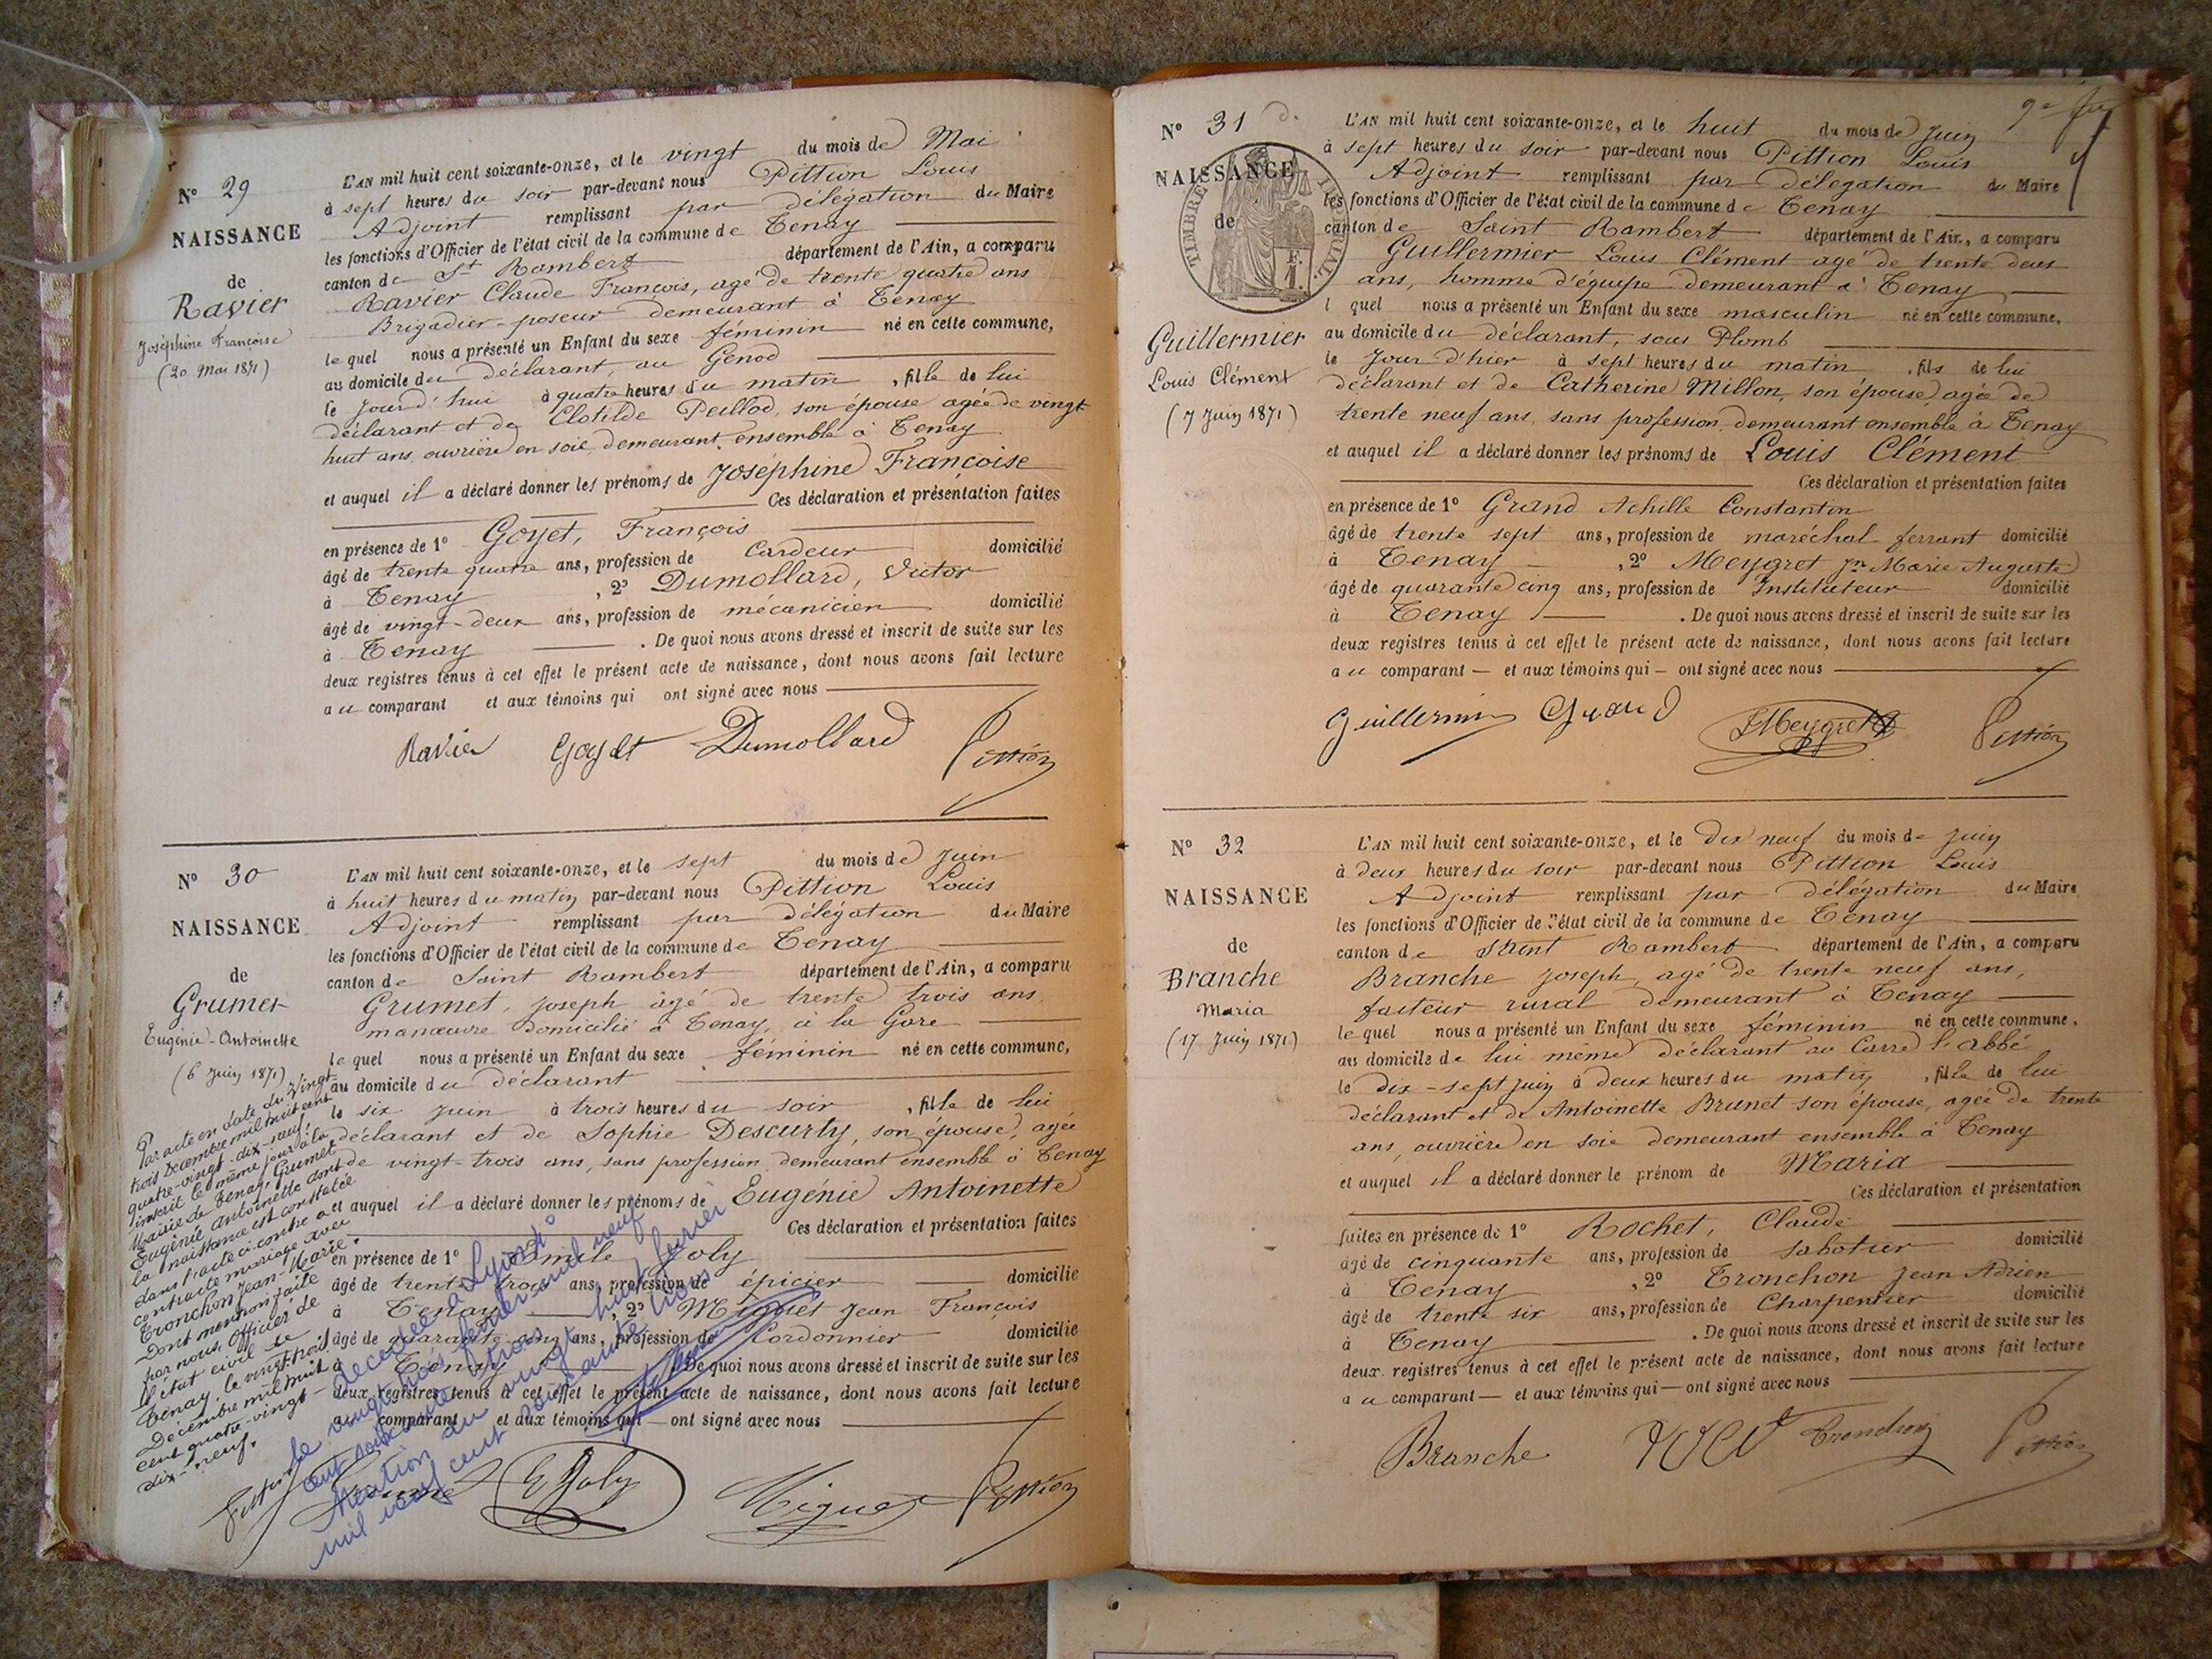 N° 29
NAISSANCE
de
Ravier
Joséphine Françoise
(20 Mai 1871)
L'AN mil huit cent soixante-onze, et le vingt du mois de Mai
à sept heures du soir par-devant nous Pittion Louis
Adjoint remplissant par délégation du Maire
les fonctions d'Officier de l'état civil de la commune de Tenay
canton de St Rambert département de l'Ain, a comparu
Ravier Claude François, agé de trente quatre ans
Brigadier-poseur demeurant à Tenay
le quel nous a présenté un Enfant du sexe féminin né en cette commune,
au domicile du déclarant, au Genod
le jour d'hui à quatre heures du matin, fille de lui
déclarant et de Clotilde Peillod, son épouse agée de vingt
huit ans, ouvrière en soie, demeurant ensemble à Tenay
et auquel il a déclaré donner les prénoms de Joséphine Françoise
Ces déclaration et présentation faites
en présence de 1° Goyet, François
âgé de trente quatre ans, profession de Cardeur domicilié
à Tenay, 2° Dumollard, Victor
âgé de vingt-deux ans, profession de mécanicien domicilié
à Tenay. De quoi nous avons dressé et inscrit de suite sur les
deux registres tenus à cet effet le présent acte de naissance, dont nous avons fait lecture
au comparant et aux témoins qui ont signé avec nous
Ravier Goyet Dumollard Pittion
N° 30
NAISSANCE
de
Grumet
Eugénie-Antoinette
(6 Juin 1871)
L'AN mil huit cent soixante-onze, et le sept du mois de Juin
à huit heures du matin par-devant nous Pittion Louis
Adjoint remplissant par délégation du Maire
les fonctions d'Officier de l'état civil de la commune de Tenay
canton de Saint Rambert département de l'Ain, a comparu
Grumet, Joseph âgé de trente trois ans,
manœuvre domicilié à Tenay, à la Gare
le quel nous a présenté un Enfant du sexe féminin né en cette commune,
au domicile du déclarant
le six juin à trois heures du soir, fille de lui
déclarant et de Sophie Descurty, son épouse, agée
de vingt-trois ans, sans profession demeurant ensemble à Tenay
et auquel il a déclaré donner les prénoms de Eugénie Antoinette
Ces déclaration et présentation faites
en présence de 1° Emile Joly
âgé de trente trois ans, profession de épicier domicilié
à Tenay, 2° Miguet Jean François
âgé de quarante cinq ans, profession de Cordonnier domicilié
à Tenay. De quoi nous avons dressé et inscrit de suite sur les
deux registres tenus à cet effet le présent acte de naissance, dont nous avons fait lecture
au comparant et aux témoins qui — ont signé avec nous
Grumet E Joly Miguet Pittion
Par acte en date du vingt
trois Décembre mil huit cent
quatre-vingt-dix-neuf,
inscrit le même jour à la
Mairie de Tenay, Grumet
Eugénie Antoinette dont
la naissance est constatée
dans l'acte ci-contre a
contracté mariage avec
Tronchon Jean-Marie.
Dont mention faite
par nous, Officier de
l'état civil de
Tenay, le vingt-trois
Décembre mil huit
cent quatre-vingt-
dix-neuf.
Décédée à Lyon
le vingt trois février mil neuf
cent soixante trois
Mention du vingt huit février
mil neuf cent soixante trois
N° 31
NAISSANCE
de
TIMBRE IMPÉRIAL
1 F.
Guillermier
Louis Clément
(7 Juin 1871)
L'AN mil huit cent soixante-onze, et le huit du mois de Juin
à sept heures du soir par-devant nous Pittion Louis
Adjoint remplissant par délégation du Maire
les fonctions d'Officier de l'état civil de la commune de Tenay
canton de Saint Rambert département de l'Ain, a comparu
Guillermier Louis Clément agé de trente deux
ans, homme d'équipe demeurant à Tenay
l quel nous a présenté un Enfant du sexe masculin né en cette commune,
au domicile du déclarant, sous Plomb
le jour d'hier à sept heures du matin, fils de lui
déclarant et de Catherine Millon, son épouse, agée de
trente neuf ans, sans profession, demeurant ensemble à Tenay
et auquel il a déclaré donner les prénoms de Louis Clément
Ces déclaration et présentation faites
en présence de 1° Grand Achille Constantin
âgé de trente sept ans, profession de maréchal ferrant domicilié
à Tenay, 2° Meygret Jn Marie Auguste
âgé de quarante cinq ans, profession de Instituteur domicilié
à Tenay. De quoi nous avons dressé et inscrit de suite sur les
deux registres tenus à cet effet le présent acte de naissance, dont nous avons fait lecture
au comparant — et aux témoins qui — ont signé avec nous
Guillermier Grand Meygret Pittion
N° 32
NAISSANCE
de
Branche
Maria
(17 Juin 1871)
L'AN mil huit cent soixante-onze, et le dix neuf du mois de Juin
à deux heures du soir par-devant nous Pittion Louis
Adjoint remplissant par délégation du Maire
les fonctions d'Officier de l'état civil de la commune de Tenay
canton de Saint Rambert département de l'Ain, a comparu
Branche Joseph, agé de trente neuf ans,
facteur rural demeurant à Tenay
le quel nous a présenté un Enfant du sexe féminin né en cette commune,
au domicile de lui même déclarant au Carré l'abbé
le dix-sept juin à deux heures du matin, fille de lui
déclarant et de Antoinette Brunet son épouse, agée de trente
ans, ouvrière en soie demeurant ensemble à Tenay
et auquel il a déclaré donner le prénom de Maria
Ces déclaration et présentation
faites en présence de 1° Rochet, Claude
âgé de cinquante ans, profession de Sabotier domicilié
à Tenay, 2° Tronchon Jean Adrien
âgé de trente six ans, profession de Charpentier domicilié
à Tenay. De quoi nous avons dressé et inscrit de suite sur les
deux registres tenus à cet effet le présent acte de naissance, dont nous avons fait lecture
au comparant — et aux témoins qui — ont signé avec nous
Branche Tronchon Pittion